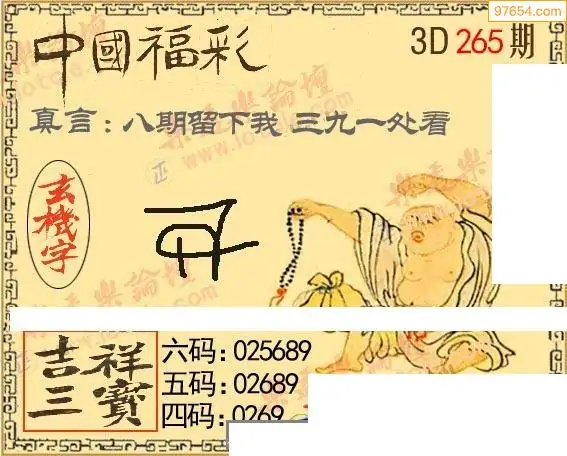 97654.com
中國福彩
3D 265 期
真言：八期留下我 三九一处看
玄機字
吉祥
三寳
六码：025689
五码：02689
四码：0269